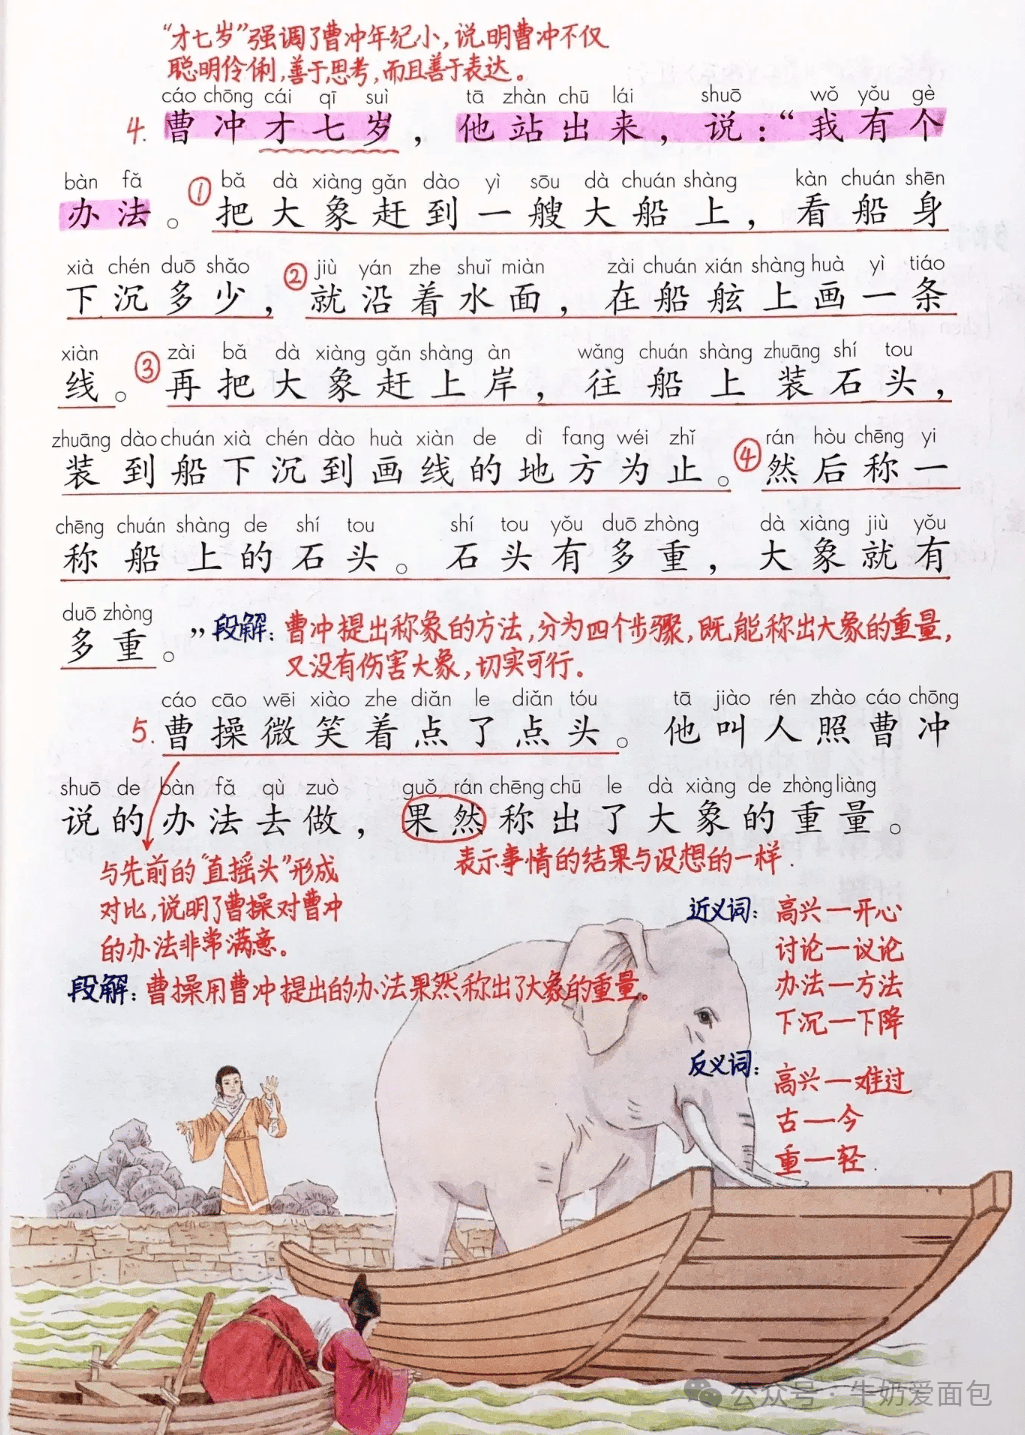 “才七岁”强调了曹冲年纪小，说明曹冲不仅
聪明伶俐，善于思考，而且善于表达。
cáo chōng cái qī suì tā zhàn chū lái shuō wǒ yǒu gè
4. 曹冲才七岁，他站出来，说：“我有个
bàn fǎ bǎ dà xiàng gǎn dào yì sōu dà chuán shàng kàn chuán shēn
办法。①把大象赶到一艘大船上，看船身
xià chén duō shǎo jiù yán zhe shuǐ miàn zài chuán xián shàng huà yì tiáo
下沉多少，②就沿着水面，在船舷上画一条
xiàn zài bǎ dà xiàng gǎn shàng àn wǎng chuán shàng zhuāng shí tou
线。③再把大象赶上岸，往船上装石头，
zhuāng dào chuán xià chén dào huà xiàn de dì fang wéi zhǐ rán hòu chēng yi
装到船下沉到画线的地方为止。④然后称一
chēng chuán shàng de shí tou shí tou yǒu duō zhòng dà xiàng jiù yǒu
称船上的石头。石头有多重，大象就有
duō zhòng
多重。”段解：曹冲提出称象的方法，分为四个步骤，既能称出大象的重量，
又没有伤害大象，切实可行。
cáo cāo wēi xiào zhe diǎn le diǎn tóu tā jiào rén zhào cáo chōng
5. 曹操微笑着点了点头。他叫人照曹冲
shuō de bàn fǎ qù zuò guǒ rán chēng chū le dà xiàng de zhòng liàng
说的办法去做，果然称出了大象的重量。
表示事情的结果与设想的一样.
与先前的“直摇头”形成
对比，说明了曹操对曹冲
的办法非常满意。
段解：曹操用曹冲提出的办法果然称出了大象的重量。
近义词：高兴—开心
讨论—议论
办法—方法
下沉—下降
反义词：高兴—难过
古—今
重—轻.
公众号·牛奶爱面包